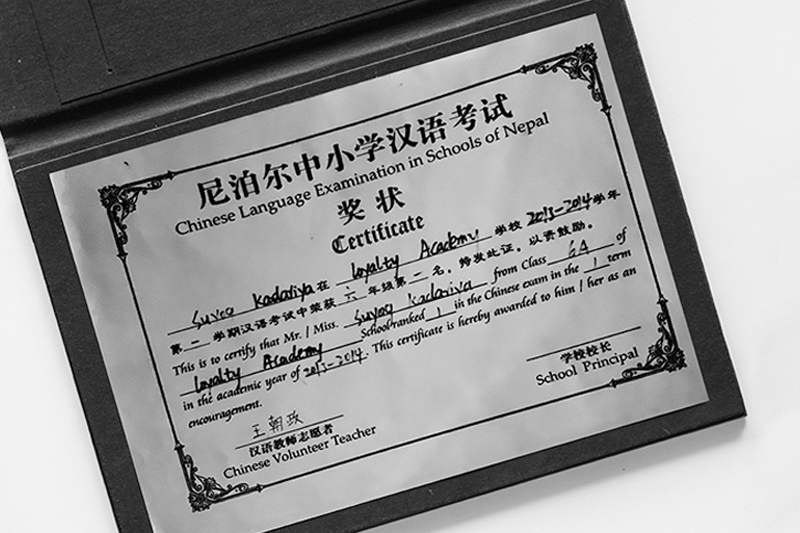 尼泊尔中小学汉语考试
Chinese Language Examination in Schools of Nepal
奖状
Certificate
Suyog Kadariya 在 Loyalty Academy 学校 2013-2014 学年
第一学期汉语考试中荣获 六 年级第 一 名。特发此证，以资鼓励。
This is to certify that Mr. / Miss. Suyog Kadariya from Class 6A of
Loyalty Academy School ranked 1 in the Chinese exam in the 1 term
in the academic year of 2013-2014. This certificate is hereby awarded to him / her as an
encouragement.
王朝政
汉语教师志愿者
Chinese Volunteer Teacher
学校校长
School Principal